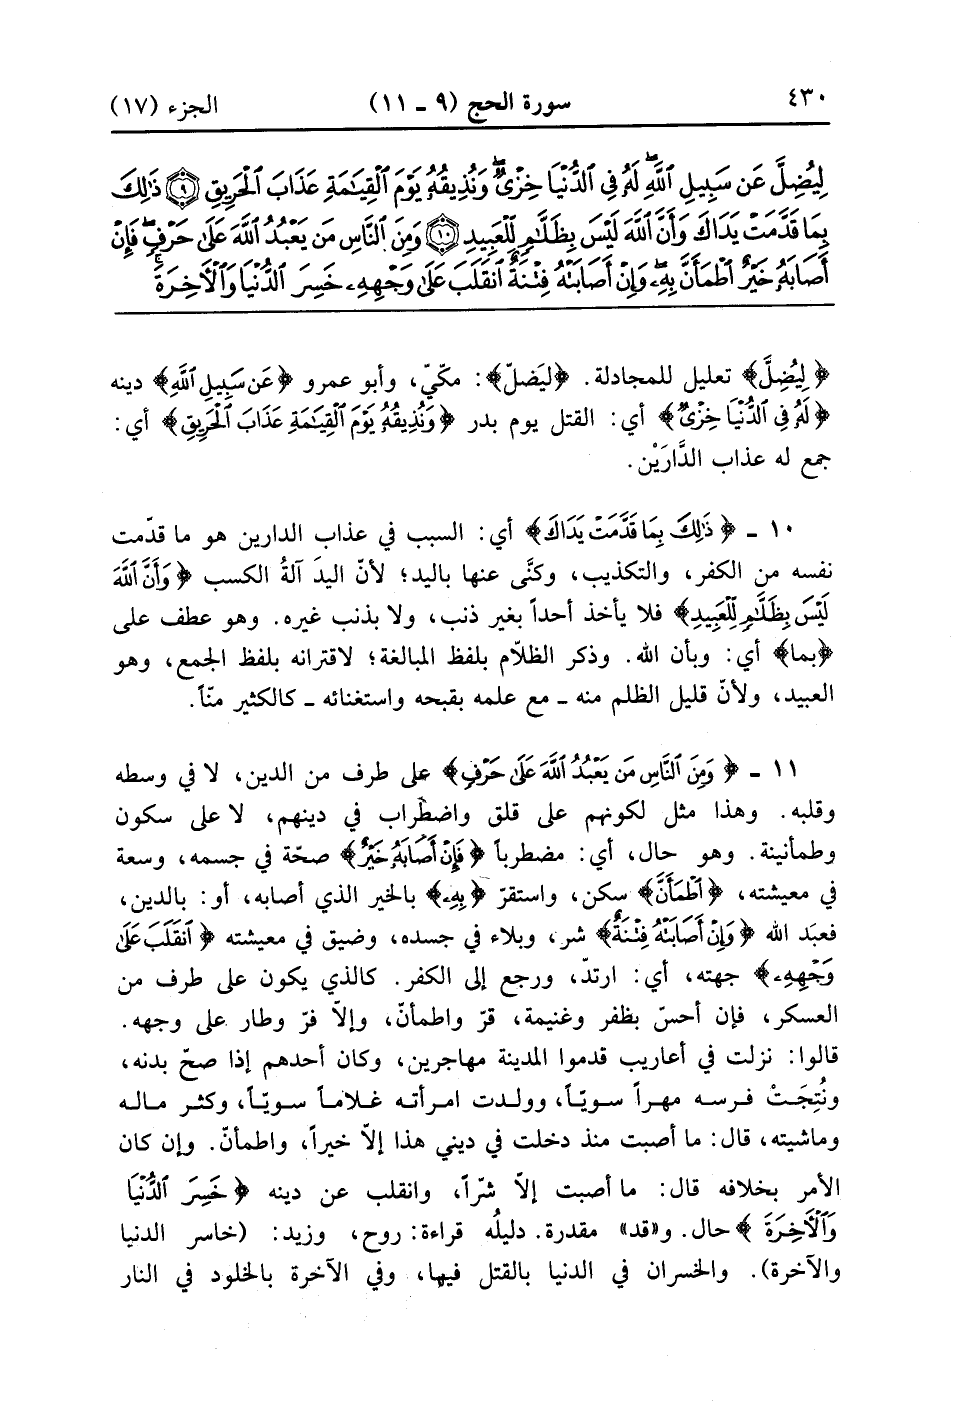 ٤٣٠ سورة الحج (٩ ـ ١١) الجزء (١٧)
لِيُضِلَّ عَن سَبِيلِ ٱللَّهِ لَهُۥ فِى ٱلدُّنْيَا خِزْىٌ وَنُذِيقُهُۥ يَوْمَ ٱلْقِيَـٰمَةِ عَذَابَ ٱلْحَرِيقِ ﴿٩﴾ ذَٰلِكَ
بِمَا قَدَّمَتْ يَدَاكَ وَأَنَّ ٱللَّهَ لَيْسَ بِظَلَّـٰمٍ لِّلْعَبِيدِ ﴿١٠﴾ وَمِنَ ٱلنَّاسِ مَن يَعْبُدُ ٱللَّهَ عَلَىٰ حَرْفٍ فَإِنْ
أَصَابَهُۥ خَيْرٌ ٱطْمَأَنَّ بِهِۦ وَإِنْ أَصَابَتْهُ فِتْنَةٌ ٱنقَلَبَ عَلَىٰ وَجْهِهِۦ خَسِرَ ٱلدُّنْيَا وَٱلْـَٔاخِرَةَ
﴿لِيُضِلَّ﴾ تعليل للمجادلة. ﴿ليَضلّ﴾: مكيّ، وأبو عمرو ﴿عَن سَبِيلِ ٱللَّهِ﴾ دينه
﴿لَهُۥ فِى ٱلدُّنْيَا خِزْىٌ﴾ أي: القتل يوم بدر ﴿وَنُذِيقُهُۥ يَوْمَ ٱلْقِيَـٰمَةِ عَذَابَ ٱلْحَرِيقِ﴾ أي:
جمع له عذاب الدَّارَيْن.
١٠ ـ ﴿ذَٰلِكَ بِمَا قَدَّمَتْ يَدَاكَ﴾ أي: السبب في عذاب الدارين هو ما قدّمت
نفسه من الكفر، والتكذيب، وكنَّى عنها باليد؛ لأنّ اليدَ آلةُ الكسب ﴿وَأَنَّ ٱللَّهَ
لَيْسَ بِظَلَّـٰمٍ لِّلْعَبِيدِ﴾ فلا يأخذ أحداً بغير ذنب، ولا بذنب غيره. وهو عطف على
﴿بما﴾ أي: وبأن الله. وذكر الظلّام بلفظ المبالغة؛ لاقترانه بلفظ الجمع، وهو
العبيد، ولأنّ قليل الظلم منه ـ مع علمه بقبحه واستغنائه ـ كالكثير منّاً.
١١ ـ ﴿وَمِنَ ٱلنَّاسِ مَن يَعْبُدُ ٱللَّهَ عَلَىٰ حَرْفٍ﴾ على طرف من الدين، لا في وسطه
وقلبه. وهذا مثل لكونهم على قلق واضطراب في دينهم، لا على سكون
وطمأنينة. وهو حال، أي: مضطرباً ﴿فَإِنْ أَصَابَهُۥ خَيْرٌ﴾ صحّة في جسمه، وسعة
في معيشته، ﴿ٱطْمَأَنَّ﴾ سكن، واستقرّ ﴿بِهِۦ﴾ بالخير الذي أصابه، أو: بالدين،
فعبَد الله ﴿وَإِنْ أَصَابَتْهُ فِتْنَةٌ﴾ شر، وبلاء في جسده، وضيق في معيشته ﴿ٱنقَلَبَ عَلَىٰ
وَجْهِهِۦ﴾ جهته، أي: ارتدّ، ورجع إلى الكفر. كالذي يكون على طرف من
العسكر، فإن أحسّ بظفر وغنيمة، قرّ واطمأنّ، وإلاّ فرّ وطار على وجهه.
قالوا: نزلت في أعاريب قدموا المدينة مهاجرين، وكان أحدهم إذا صحّ بدنه،
ونُتِجَتْ فرسه مهراً سويّاً، وولدت امرأته غلاماً سويّاً، وكثر ماله
وماشيته، قال: ما أصبت منذ دخلت في ديني هذا إلاّ خيراً، واطمأنّ. وإن كان
الأمر بخلافه قال: ما أصبت إلاّ شرّاً، وانقلب عن دينه ﴿خَسِرَ ٱلدُّنْيَا
وَٱلْـَٔاخِرَةَ﴾ حال. و«قد» مقدرة. دليلُه قراءة: روح، وزيد: (خاسر الدنيا
والآخرة). والخسران في الدنيا بالقتل فيها، وفي الآخرة بالخلود في النار